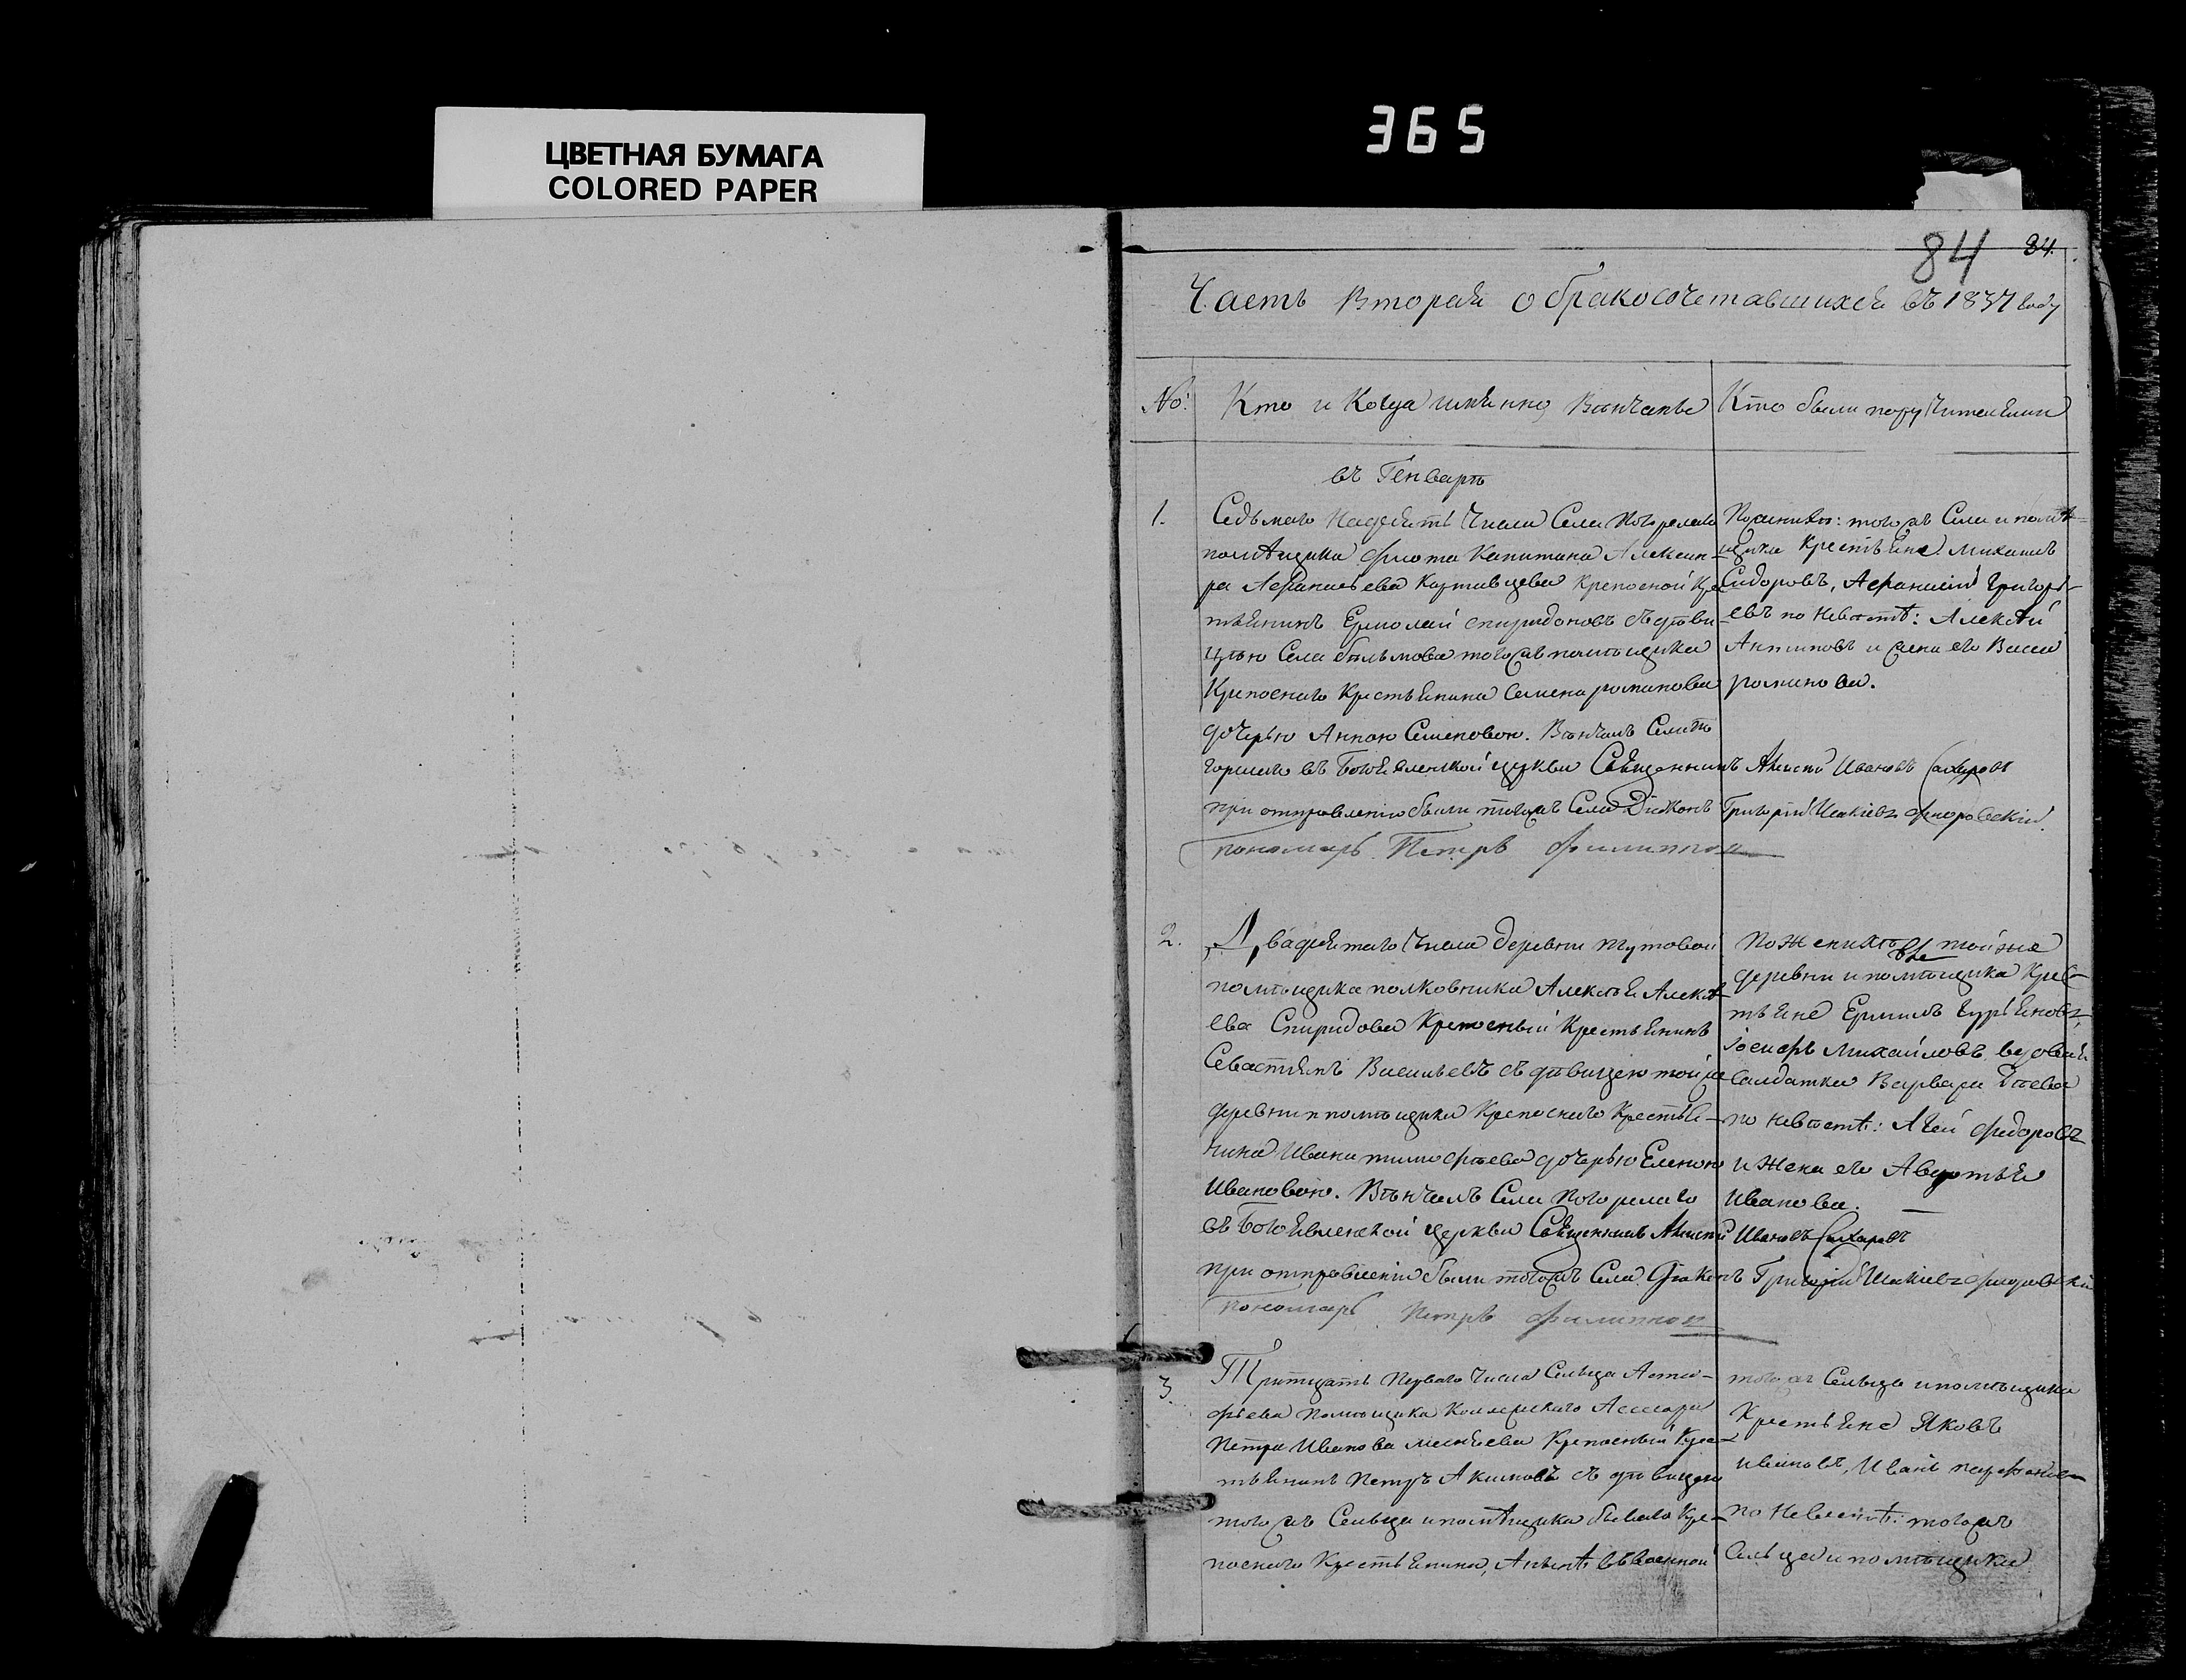 ЦВЕТНАЯ БУМАГА
COLORED PAPER
365
84 84.
Часть Вторая о бракосочетавшихся въ 1837 году
№: Кто и Когда имянно Вѣнчаны
Кто были поручителями
въ Генварѣ
1. Седьмаго Надесять Числа Села Погорелаго
помѣщика Флота Капитана Алексан-
ра Афанасьева Картавцева Крепосной Кре
тьянинъ Ермолай спиридоновъ съ дѣви
цею Села того жъ помѣщика
Крепоснаго Крестьянина Семена романова
дочерью Анною Семеновою. Вѣнчалъ Села по
горелаго въ Богоявленской церкви Священникъ Иванов
при отправлении были тогожъ Села Диаконъ Григорий
пономарь Петръ Филиппов
По женихѣ: того жъ Села и помѣ-
щика Крестьяне Михаилъ
Сидоровъ, Афанасий Григорь-
евъ по невѣстѣ: Алексѣй
Антиповъ и жена его Васса
романова.
2. Двадцятаго Числа деревни Тутовой
помѣщика полковника Алексѣя Алексѣ
ева Спиридова Крепосный Крестьянинъ
Севастьянъ Васильевъ съ дѣвицею той же
деревни и помѣщика Крепоснаго Крестья-
нина Ивана тимофѣева дочерью Еленою
Ивановою. Вѣнчалъ Села Погорелаго
въ Богоявленской церкви Священникъ Ивановъ
при отправлении были тогожъ Села Диаконъ Григорий
пономарь Петръ Филиппов
По женихѣ той же
деревни и помѣщика Крес-
тьяне Ермилъ Гурьяновъ,
Iосифъ Михайловъ, вдовая
Салдатка Варвара
по невѣстѣ: Агей Федоровъ
и Жена его Авдотья
Иванова.
3. Тритцать Перваго Числа Сельца Асти-
фьева Помѣщика Коллежскаго Асессора
Петра Иванова Крепосный Крес-
тьянинъ Петръ Акимовъ съ дѣвицею
того жъ Сельца и помѣщика бывшаго Кре-
поснаго Крестьянина,
того жъ Сельца и помѣщика
Крестьяне Яковъ
Ивановъ, Иванъ
по Невѣстѣ: того жъ
Сельца и помѣщика